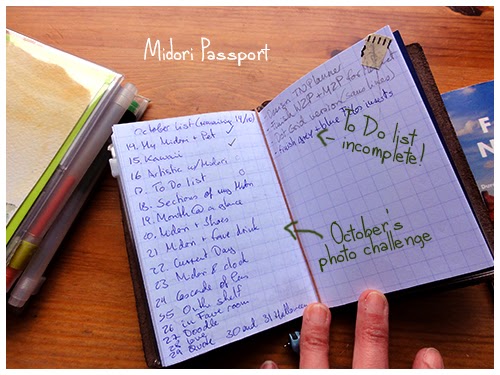 Midori Passport
October list (remaining 19/10)
14. My Midori + Pet
15. Kawaii
16. Artistic w/ Midori
17. To Do list
18. Sections of my Midori
19. Month @ a glance
20. Midori + Shoes
21. Midori + Fave drink
22. Current Day
23. Midori & clock
24. Cascade of
25. On the shelf
26. in Fave room
27. Doodle
28. love
29. Quote 30 and 31 Halloween
Design TN Planner
Finish W2P + M2P for
grid version
Finish grey + blue inserts
To Do list
incomplete!
October's
photo challenge
F